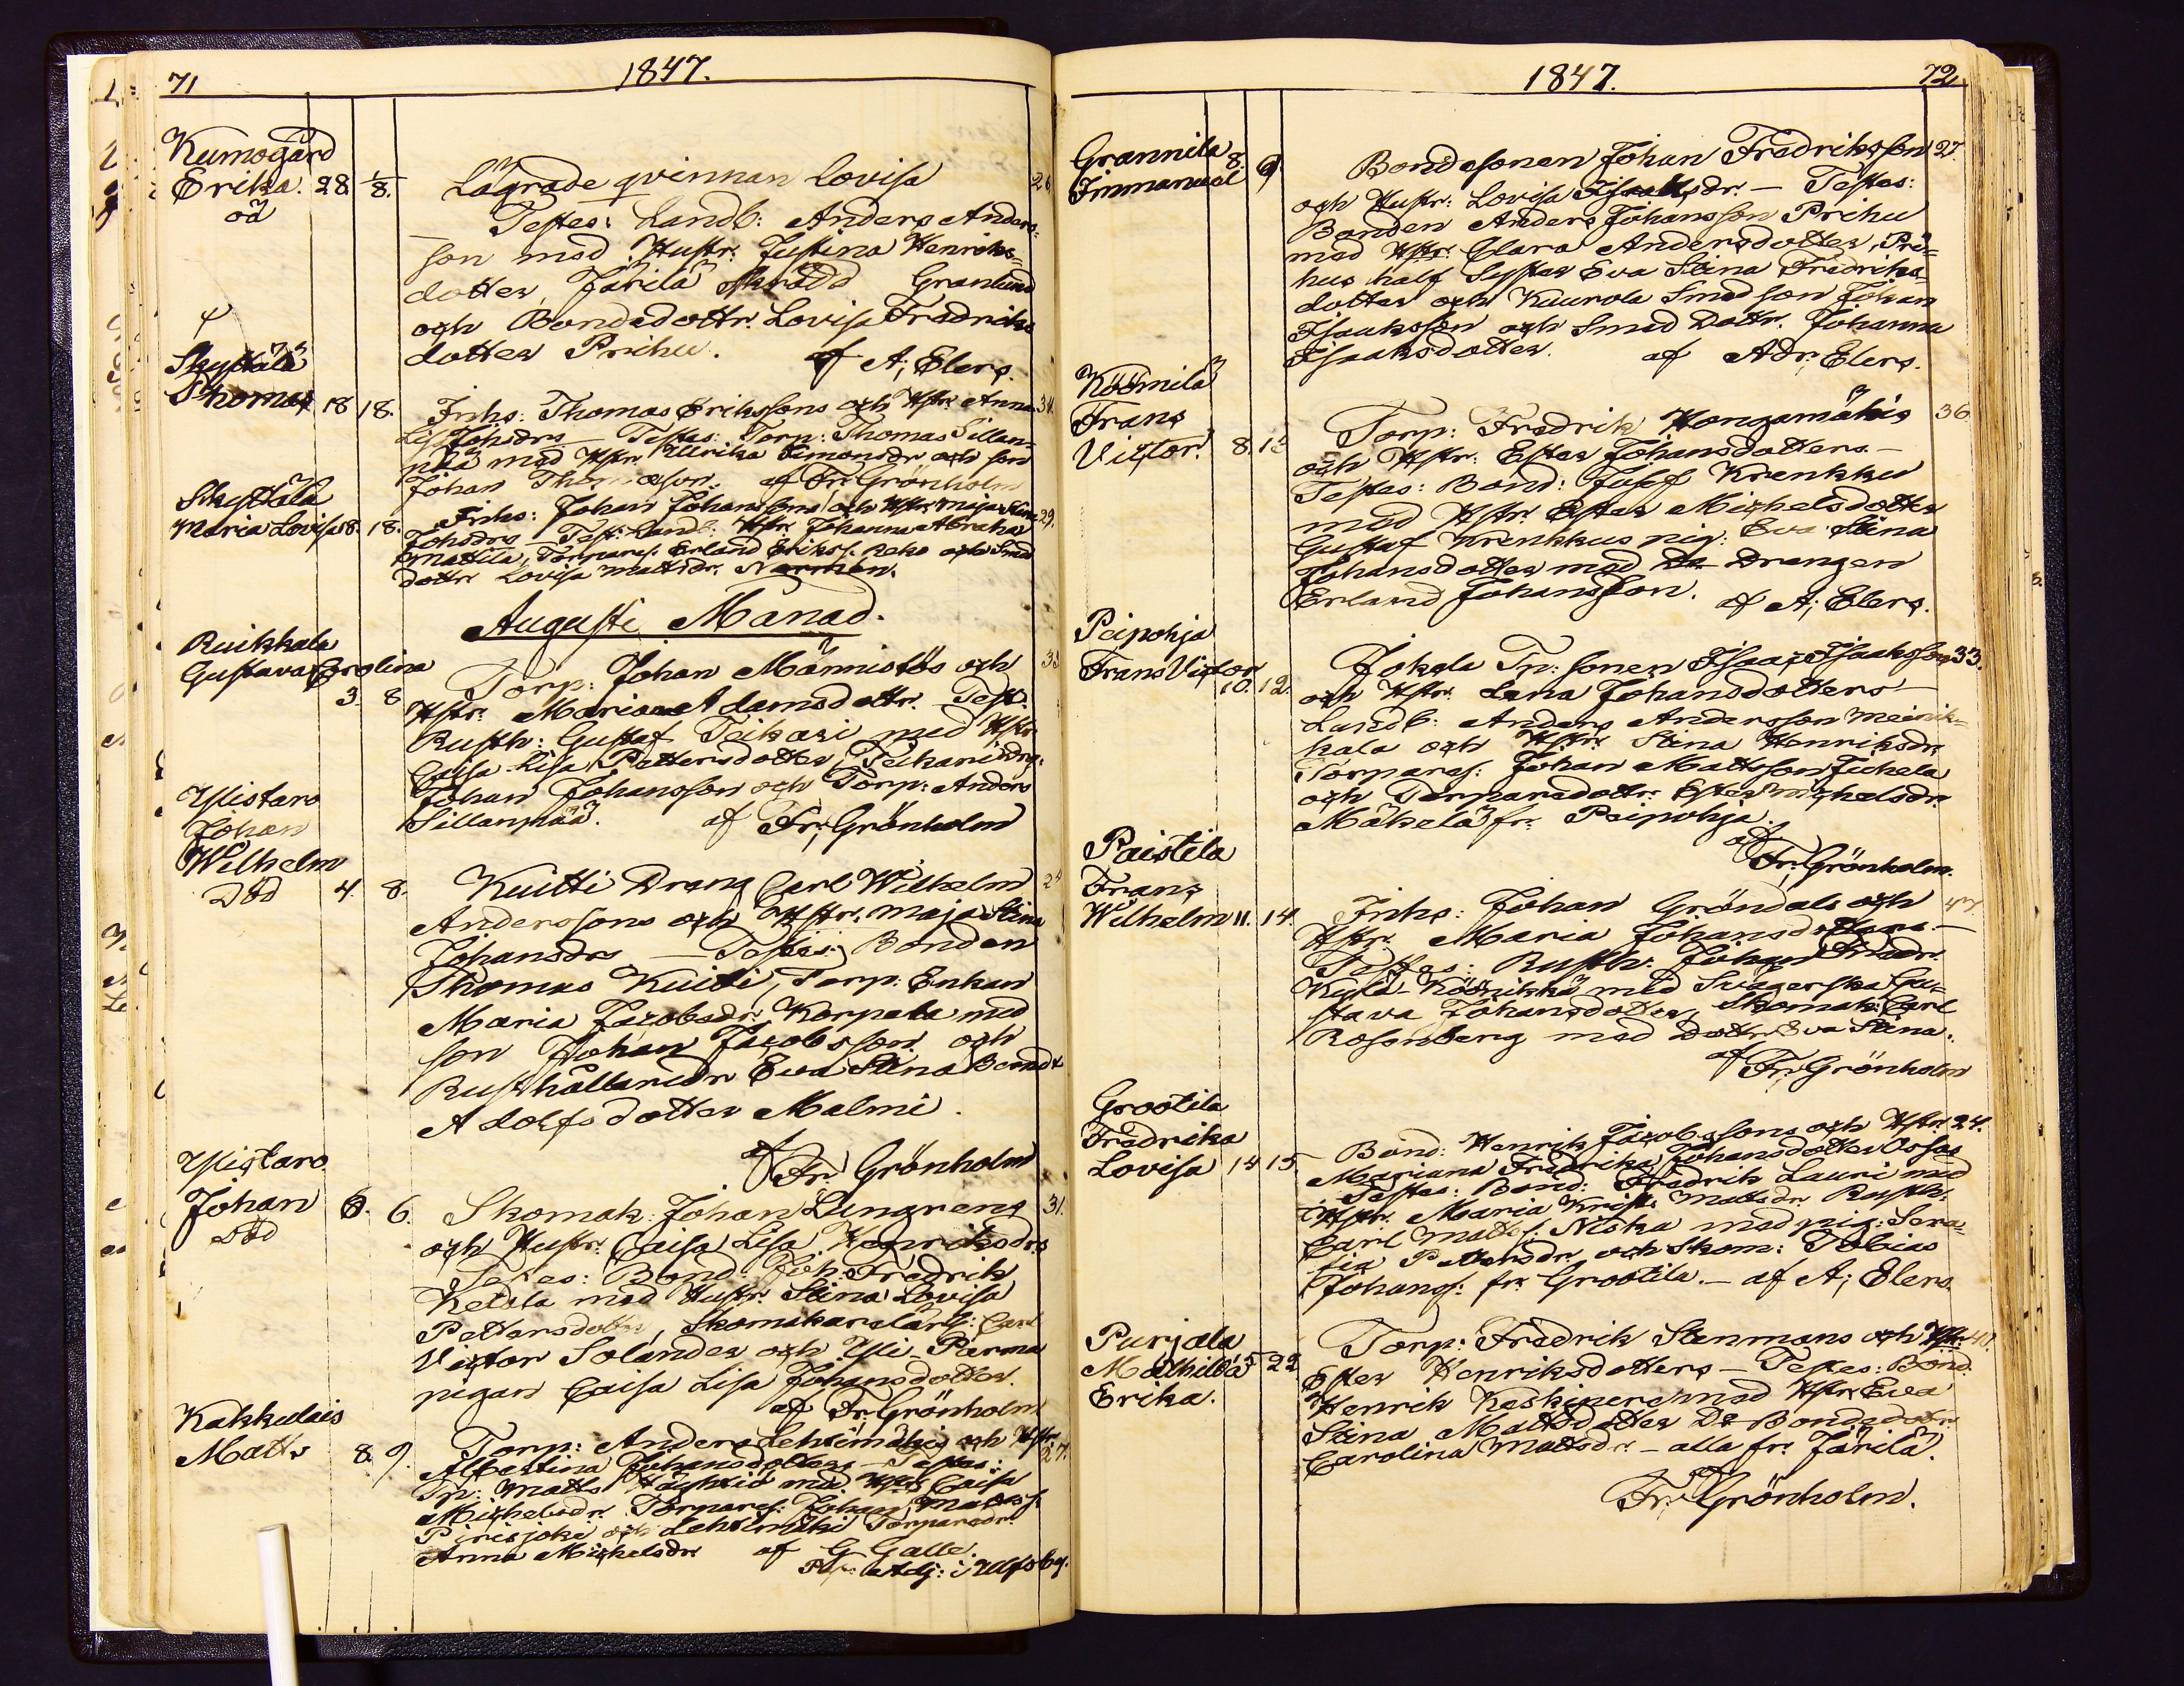 71
1847.
Kumogård
Erika. 28 1/8. Lägrade qvinnan Lovisa 26
oä
Testes: Landb: Anders Anders-
son med Hustr. Justina Henriks-
dotter, Järilä Skrädd Granlund
och Bondedottr. Lovisa Fredriks
dotter Prihu. af A; Elers.
Skyttälä
Thomas 18 18. Inhs: Thomas Erikssons och Hstr. Anna 34.
Lisa Johsdrs — Testes: Torp: Thomas Sillan-
pää med Hstr Ulrika Simonsdr och son
Johan Thomasson. af Fr: Grönholm
Skyttälä
Maria Lovisa 18. 18. Inhs: Johan Johanssons och Hstr. Maja Stina 29.
Johsdrs — Test: Landb: Hstr. Johanna Abrahad
Mattila, Torpares. Erland Erikss. Reko och Smed
dottr Lovisa Mattsdr. Norrman.
Augusti Månad.
Ruikkala
Gustava Carolina
3 8 Torp: Johan Männistös och 33
Hstr. Maria Adamsdottr. — Test:
Rusth: Gustaf Teikari med Hstr
Caisa Lisa Pettersdotter, Teikari Drg.
Johan Johansson och Torp: Anders
Sillanpää. af Fr; Grönholm
Ylistaro
Johan
Wilhelm
Död 4. 8. Kuitti Dräng Carl Wilhelm 24
Anderssons och Hstr. Maja Stina
Johansdrs — Testes: Bonden
Thomas Kuitti, Torp: Enkan
Maria Jacobsdr. Korpela med
son Johan Jacobsson och
Rusthållaredr Eva Stina Berndt
Adolfsdotter Malmi.
af Fr: Grönholm
Ylistaro
Johan 6. 6. Skomak: Johan Lungrens 31.
Död
och Hustr. Caisa Lisa Henriksdrs
Testes: Bond: Joh: Fredrik
Ketola med Hustr. Stina Lovisa
Pettersdotter, Skomakarelärl: Carl
Victor Solander och Yli-Perma
pigan Caisa Lisa Johansdotter.
af Fr: Grönholm
Kakkulais
Matts 8. 9. Torp: Anders Lehtimäkis och Hstr. 27.
Albertina Johansdotters — Testes:
Tp: Matts Häyhtiö med Hstr. Caisa
Michelsdr. Torpares. Johan Mattss.
Piirisjoki och Lehtimäki Torparedr.
Anna Michelsdr af G Galle.
Adj: i Ulfsby.
1847.
72
Grannila
Immanuel 8. 9 Bondesonen Johan Fredriksson 27.
och Hustr: Lovisa Isaaksdr. — Testes:
Bonden Anders Johansson Prihu
med Hstr. Clara Andersdotter, Pri-
hus half Syster Eva Stina Fredriks-
dotter och Kuurola Smedson Johan
Isaaksson och Smed Dottr. Johanna
Isaaksdotter. af Adr; Elers.
Köömilä
Frans
Victor. 8. 13 Torp: Fredrik Hongamäkis 36
och Hstr. Ester Johansdotters. —
Testes: Bond: Josef Krenkku
med Hstr. Ester Michelsdotter
Gustaf Krenkkus pig: Eva Stina
Johansdotter med Drengen
Erland Johansson. af A; Elers.
Peipohja
Frans Victor
10. 12. Jokela Tp: sonen Isaac Isaakssons 33.
och Hstr. Lena Johansdotters —
Landb: Anders Andersson Meinik-
kala och Hstr. Stina Henriksdr.
Torpares: Johan Mattsson Juhela
och Torparedottr. Ester Michelsdr.
Mäkelä fr. Peipohja.
af
Fr; Grönholm.
Paistila
Frans
Wilhelm 11. 14. Inhs: Johan Gröndals och 47.
Hstr. Maria Johansdotters. —
Testes: Rusth: Johan Fredr.
Kylä-Köönikkä med Svägerska Gu-
stava Johansdotter, Skomak: Carl
Rosenberg med Dottr. Eva Stina.
af Fr; Grönholm
Grootila
Fredrika
Lovisa 14 15. Bond: Henrik Jacobssons och Hstr. 24.
Mariana Fredrika Johansdotter Ossas
Testes: Bond: Fredrik Lauri med
Hstr. Maria Krist: Mattsdr. Rusth:
Carl Matts: Niska med pig: Sera-
fia Pettersdr. och Skom: Tobias
Johans: fr. Grootila. — af A; Elers.
Purjala
Mathilda 5 22 Torp: Fredrik Stenmans och Hstr. 40.
Erika.
Ester Henriksdotters — Testes: Bond.
Henrik Keskipere med Hstr. Eva
Stina Mattsdotter Do Bondedotr.
Carolina Mattsdr. — alla fr. Järilä.
af
Fr: Grönholm.